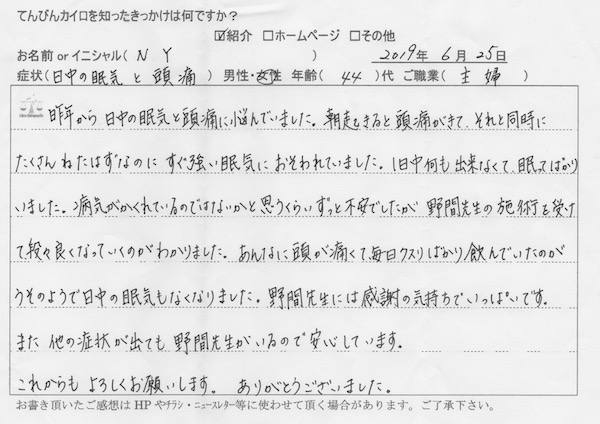 てんびんカイロを知ったきっかけは何ですか？
☑紹介 □ホームページ □その他
お名前 or イニシャル( N Y ) 2019年 6月 25日
症状(日中の眠気 と 頭痛) 男性・女性 年齢( 44 )代 ご職業( 主婦 )
昨年から 日中の眠気と頭痛に悩んでいました。朝起きると頭痛がきて、それと同時に
たくさん ねたはずなのに すぐ強い眠気に おそわれていました。1日中何も出来なくて、眠ってばかり
いました。病気がかくれているのではないかと思うくらい ずっと不安でしたが 野間先生の施術を受け
て段々良くなっていくのがわかりました。あんなに頭が痛くて毎日クスリばかり飲んでいたのが
うそのようで日中の眠気もなくなりました。野間先生には感謝の気持ちでいっぱいです。
また 他の症状が出ても 野間先生がいるので安心しています。
これからも よろしくお願いします。 ありがとうございました。
お書き頂いたご感想は HP やチラシ・ニュースレター等に使わせて頂く場合があります。ご了承下さい。